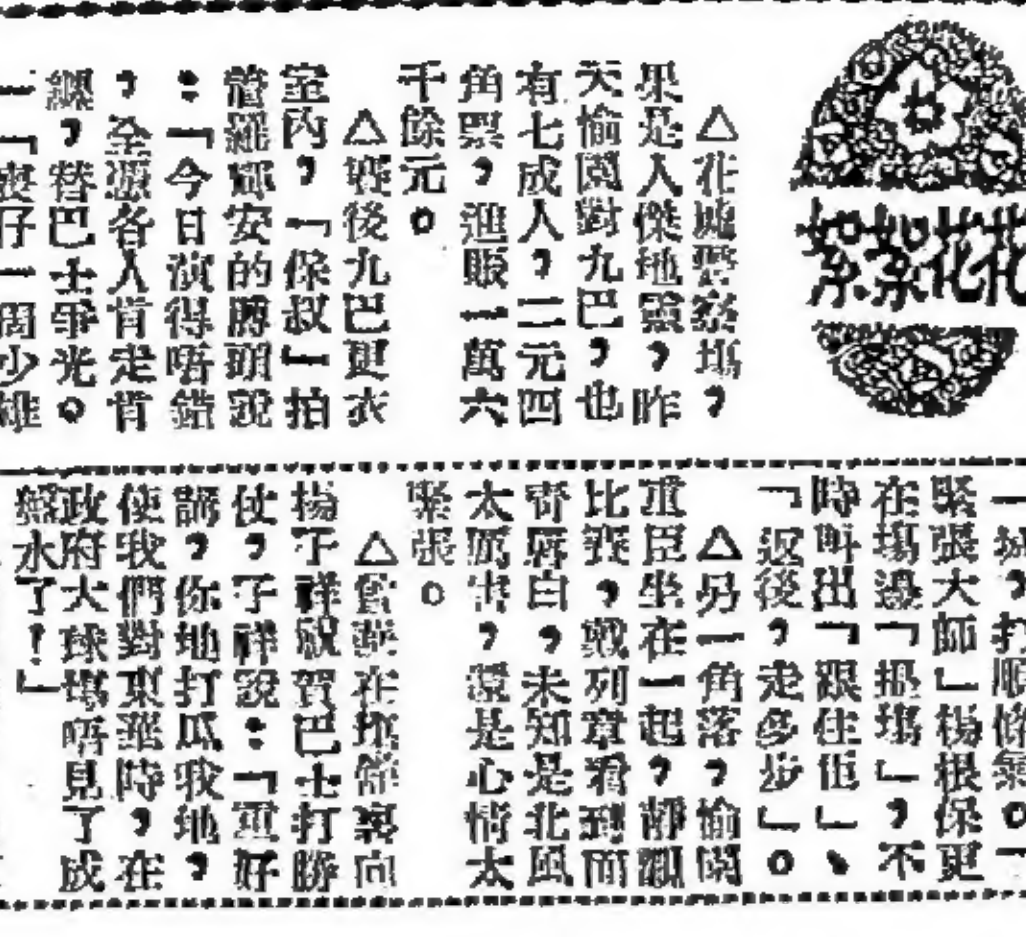 花花絮絮
△花墟警察塲，
果是人傑地靈，昨
天愉園對九巴，也
有七成人，二元四
角票，進賬一萬六
千餘元。
△賽後九巴更衣
室內，「保叔」拍
管羅鄧安的膊頭說
：「今日演得唔錯
，全源各人肯走肯
，替巴士爭光。
一「喪仔一個少雄
一城，打順條氣。「
緊張大師」楊根保更
在塲邊「揸塲」，不
時叫出「跟住佢」、
「返後，走多步」。
△另一角落，愉園
重臣坐在一起，靜觀
比賽，戰列章看到面
青唇白，未知是北風
太厲害，還是心情太
緊張。
△曾 在 館裏向
楊子祥說賀巴士打勝
仗，子祥說：「重好
講，你地打瓜我地，
使我們對東華時，在
政府大球塲唔見了成
 水了！」